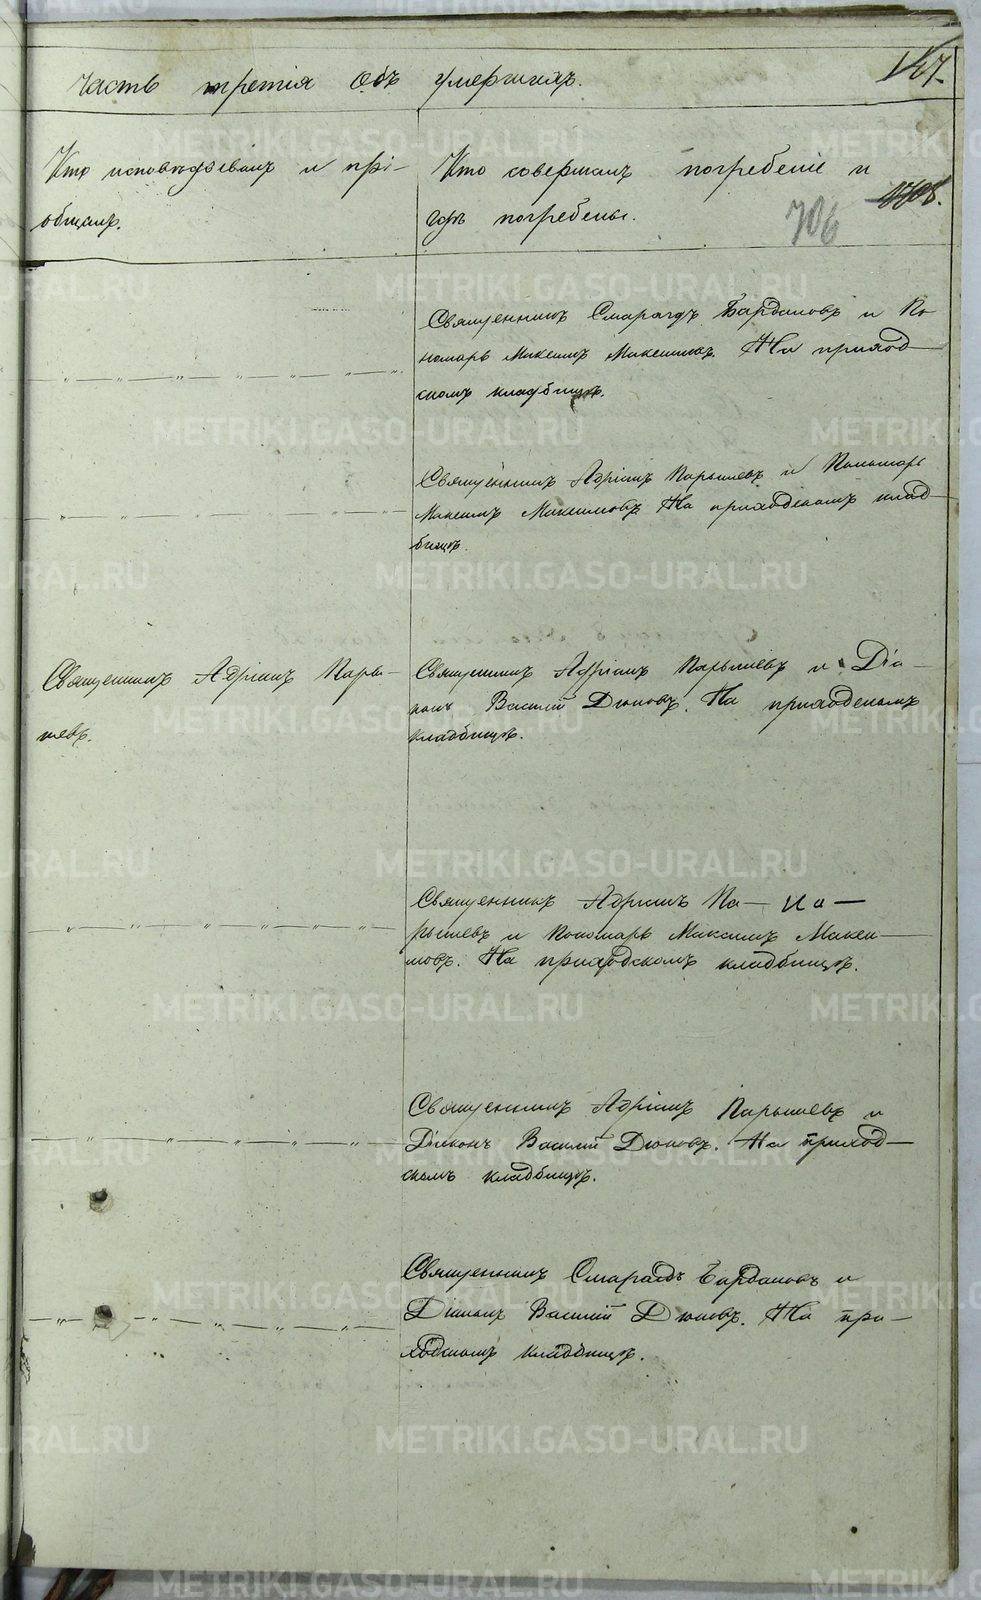 часть третія объ умершихъ.
Кто исповѣдывалъ и прі-
общалъ.
Кто совершалъ погребеніе и
гдѣ погребены.
706
Священникъ Смарагдъ Бардановъ и По
номарь Максимъ Максимовъ. На приход-
скомъ кладбищѣ.
Священникъ Адріанъ Парышевъ и Пономарь
Максимъ Максимовъ. На приходскомъ клад-
бищѣ.
Священникъ Адріанъ Пары-
шевъ.
Священникъ Адріанъ Парышевъ и Діа-
конъ Василій Дюковъ. На приходскомъ
кладбищѣ.
Священникъ Адріанъ Па-
рышевъ и Пономарь Максимъ Макси-
мовъ. На приходскомъ кладбищѣ.
Священникъ Адріанъ Парышевъ и
Діаконъ Василій Дюковъ. На приход-
скомъ кладбищѣ.
Священникъ Смарагдъ Бардановъ и
Діаконъ Василій Дюковъ. На при-
ходскомъ кладбищѣ.
METRIKI.GASO-URAL.RU